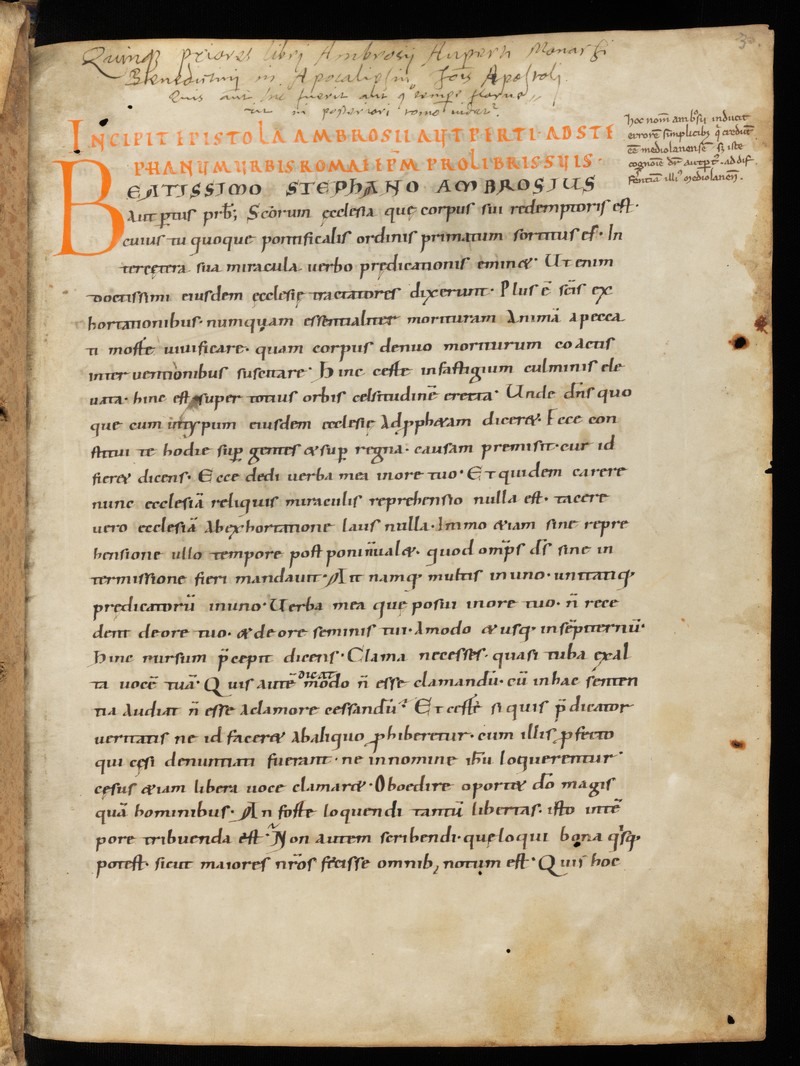 3.
Quinq; priores libri Ambrosij Auperti Monachi
Benedictinj in Apocalipsin Joīs Apostoli.
Quis aut̄ hic fuerit aut q̄ tempe floruᵉ
in posteriori tomo videtᵉ.
INCIPIT EPISTOLA AMBROSII AUTPERTI· AD STE
PHANUM URBIS ROMAE EP̄M PRO LIBRIS SUIS·
BEATISSIMO STEPHANO AMBROSIUS
Autꝑtus prb̄; Sc̄orum ęcclesia que corpus sui redemptoris est·
cuius tu quoque pontificalis ordinis primatum sortitus es· In
ter cętera sua miracula uerbo prędicationis eminet· Ut enim
doctissimi eiusdem ecclesię tractatores dixerunt· Plus ē sc̄is ex
hortationibus· numquam essentialiter morituram Animā a pecca
ti morte uiuificare· quam corpus denuo moriturum coactis
interuentionibus suscitare· Hinc certe infastigium culminis ele
uata· hinc est super totius orbis celsitudinē erecta· Unde dn̄s quo
que cum in typum eiusdem ecclesię Ad ꝓphetam diceret· Ecce con
stitui te hodie suꝑ gentes et suꝑ regna· causam premisit· cur id
fieret dicens· Ecce dedi uerba mea in ore tuo· Et quidem carere
nunc ecclesiā reliquis miraculis reprehensio nulla est· tacere
uero ecclesiā Ab exhortatione laus nulla· Immo etiam sine repre
hensione ullo tempore postponi n̄ ualet· quod omp̄s ds̄ sine in
termissione fieri mandauit· Ait namq· multis in uno· unitatiq·
prędicatorū in uno· Uerba mea que posui in ore tuo· n̄ rece
dent de ore tuo· et de ore seminis tui· Amodo et usq· in sēpiternū·
Hinc rursum p̄cepit dicens· Clama ne cesses· quasi tuba exal
ta uocē tuā· Quis autē dicat modo n̄ esse clamandū· cū in hac senten
tia Audiat n̄ esse A clamore cessandū· Et certe si quis p̄dicator
ueritatis ne id faceret Ab aliquo ꝓhiberetur· cum illis ꝓfecto
qui cęsi denuntiati fuerant· ne in nomine ih̄u loquerentur·
cęsus etiam libera uoce clamaret· Oboedire oportet dō magis
quā hominibus· An forte loquendi tantū libertas· isto intē
pore tribuenda est· Non autem scribendi· que loqui bona qisq·
potest· sicut maiores nr̄os fecisse omnib; notum est· Quis hoc
hoc nom̄ ambrosij inducit
errorē simplicibꝫ q̄ credūt
eē mediolanensē sꝫ iste
cognoīe dr̄ autpertꝰ ad dif
ferentiā illiꝰ mediolanēn̄.